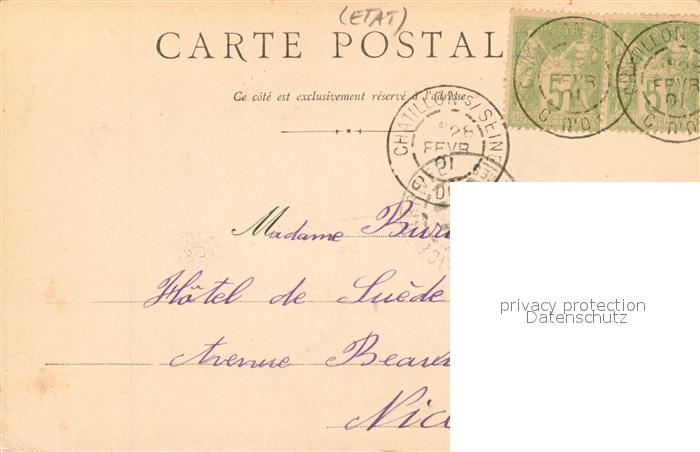 (ETAT)
CARTE POSTAL
Ce côté est exclusivement réservé à l'adresse
CHATILLON S/ SEINE
28
FEVR
01
CHATILLON
FEVR
01
C. D'O
5
5
Madame Bur
Hôtel de Suède
Avenue Beau
Nic
privacy protection
Datenschutz